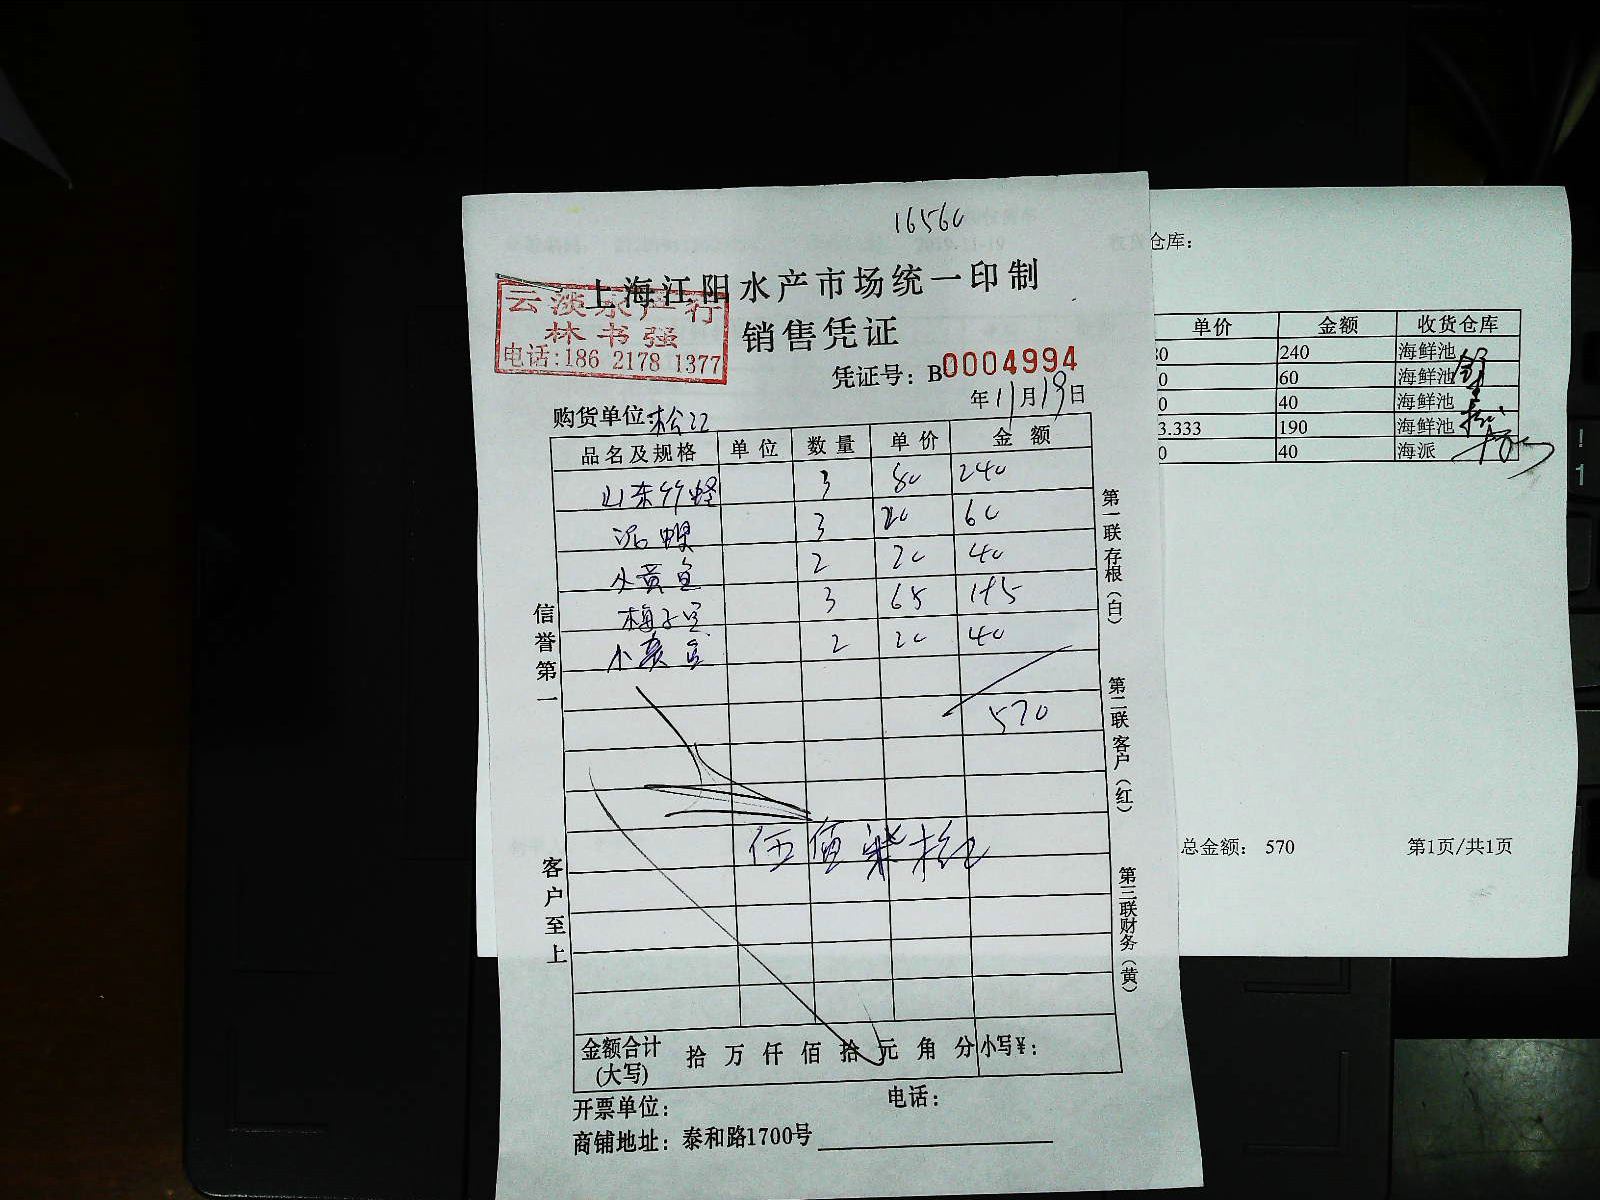 16560
上海江阳水产市场统一印制
云淡水产行
林书强
电话:186 2178 1377
销售凭证
凭证号：B0004994
年11月19日
购货单位 松江
品名及规格 单位 数量 单价 金额
山东竹蛏 3 80 240
泥螺 3 20 60
小黄鱼 2 20 40
梅子鱼 3 65 195
小黄鱼 2 20 40
570
伍佰柒拾元
金额合计(大写) 拾万仟佰拾元角分 小写￥：
开票单位： 电话：
商铺地址：泰和路1700号
信誉第一
客户至上
第一联存根（白）
第二联客户（红）
第三联财务（黄）
仓库：
单价 金额 收货仓库
80 240 海鲜池
0 60 海鲜池
0 40 海鲜池
3.333 190 海鲜池
0 40 海派
总金额： 570 第1页/共1页